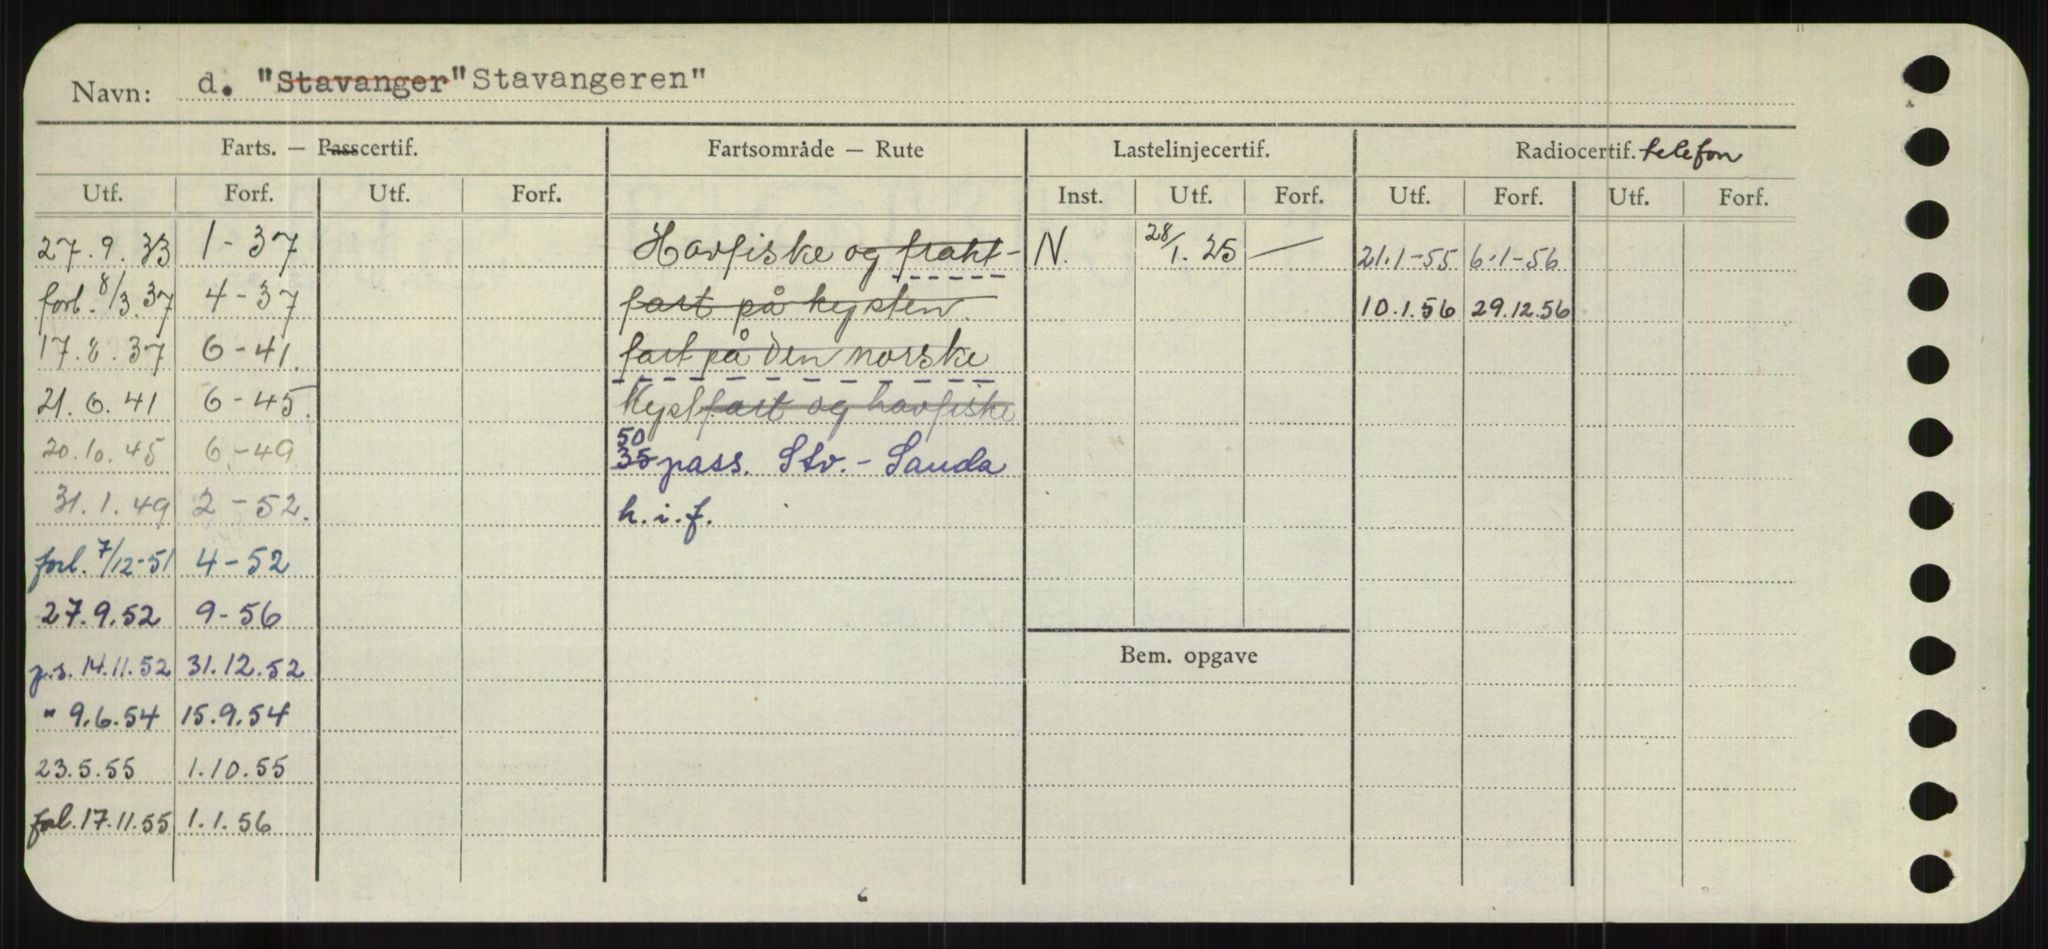 Navn: d. "Stavanger" Stavangeren"
Farts. — Passcertif. Fartsområde — Rute Lastelinjecertif. Radiocertif. telefon
Utf. Forf. Utf. Forf. Inst. Utf. Forf. Utf. Forf. Utf. Forf.
27.9.33 1-37 Havfiske og frakt- N. 28/1.25 — 21.1-55 6.1-56
forl. 8/3.37 4-37 fart på kysten. 10.1.56 29.12.56
17.8.37 6-41. fart på den norske
21.6.41 6-45. Kystfart og havfiske
20.10.45 6-49 50 35 pass. Stv. - Sauda
31.1.49 2-52. h.i.f.
forl. 7/12-51 4-52
27.9.52 9-56
p.s. 14.11.52 31.12.52 Bem. opgave
" 9.6.54 15.9.54
23.5.55 1.10.55
forl. 17.11.55 1.1.56